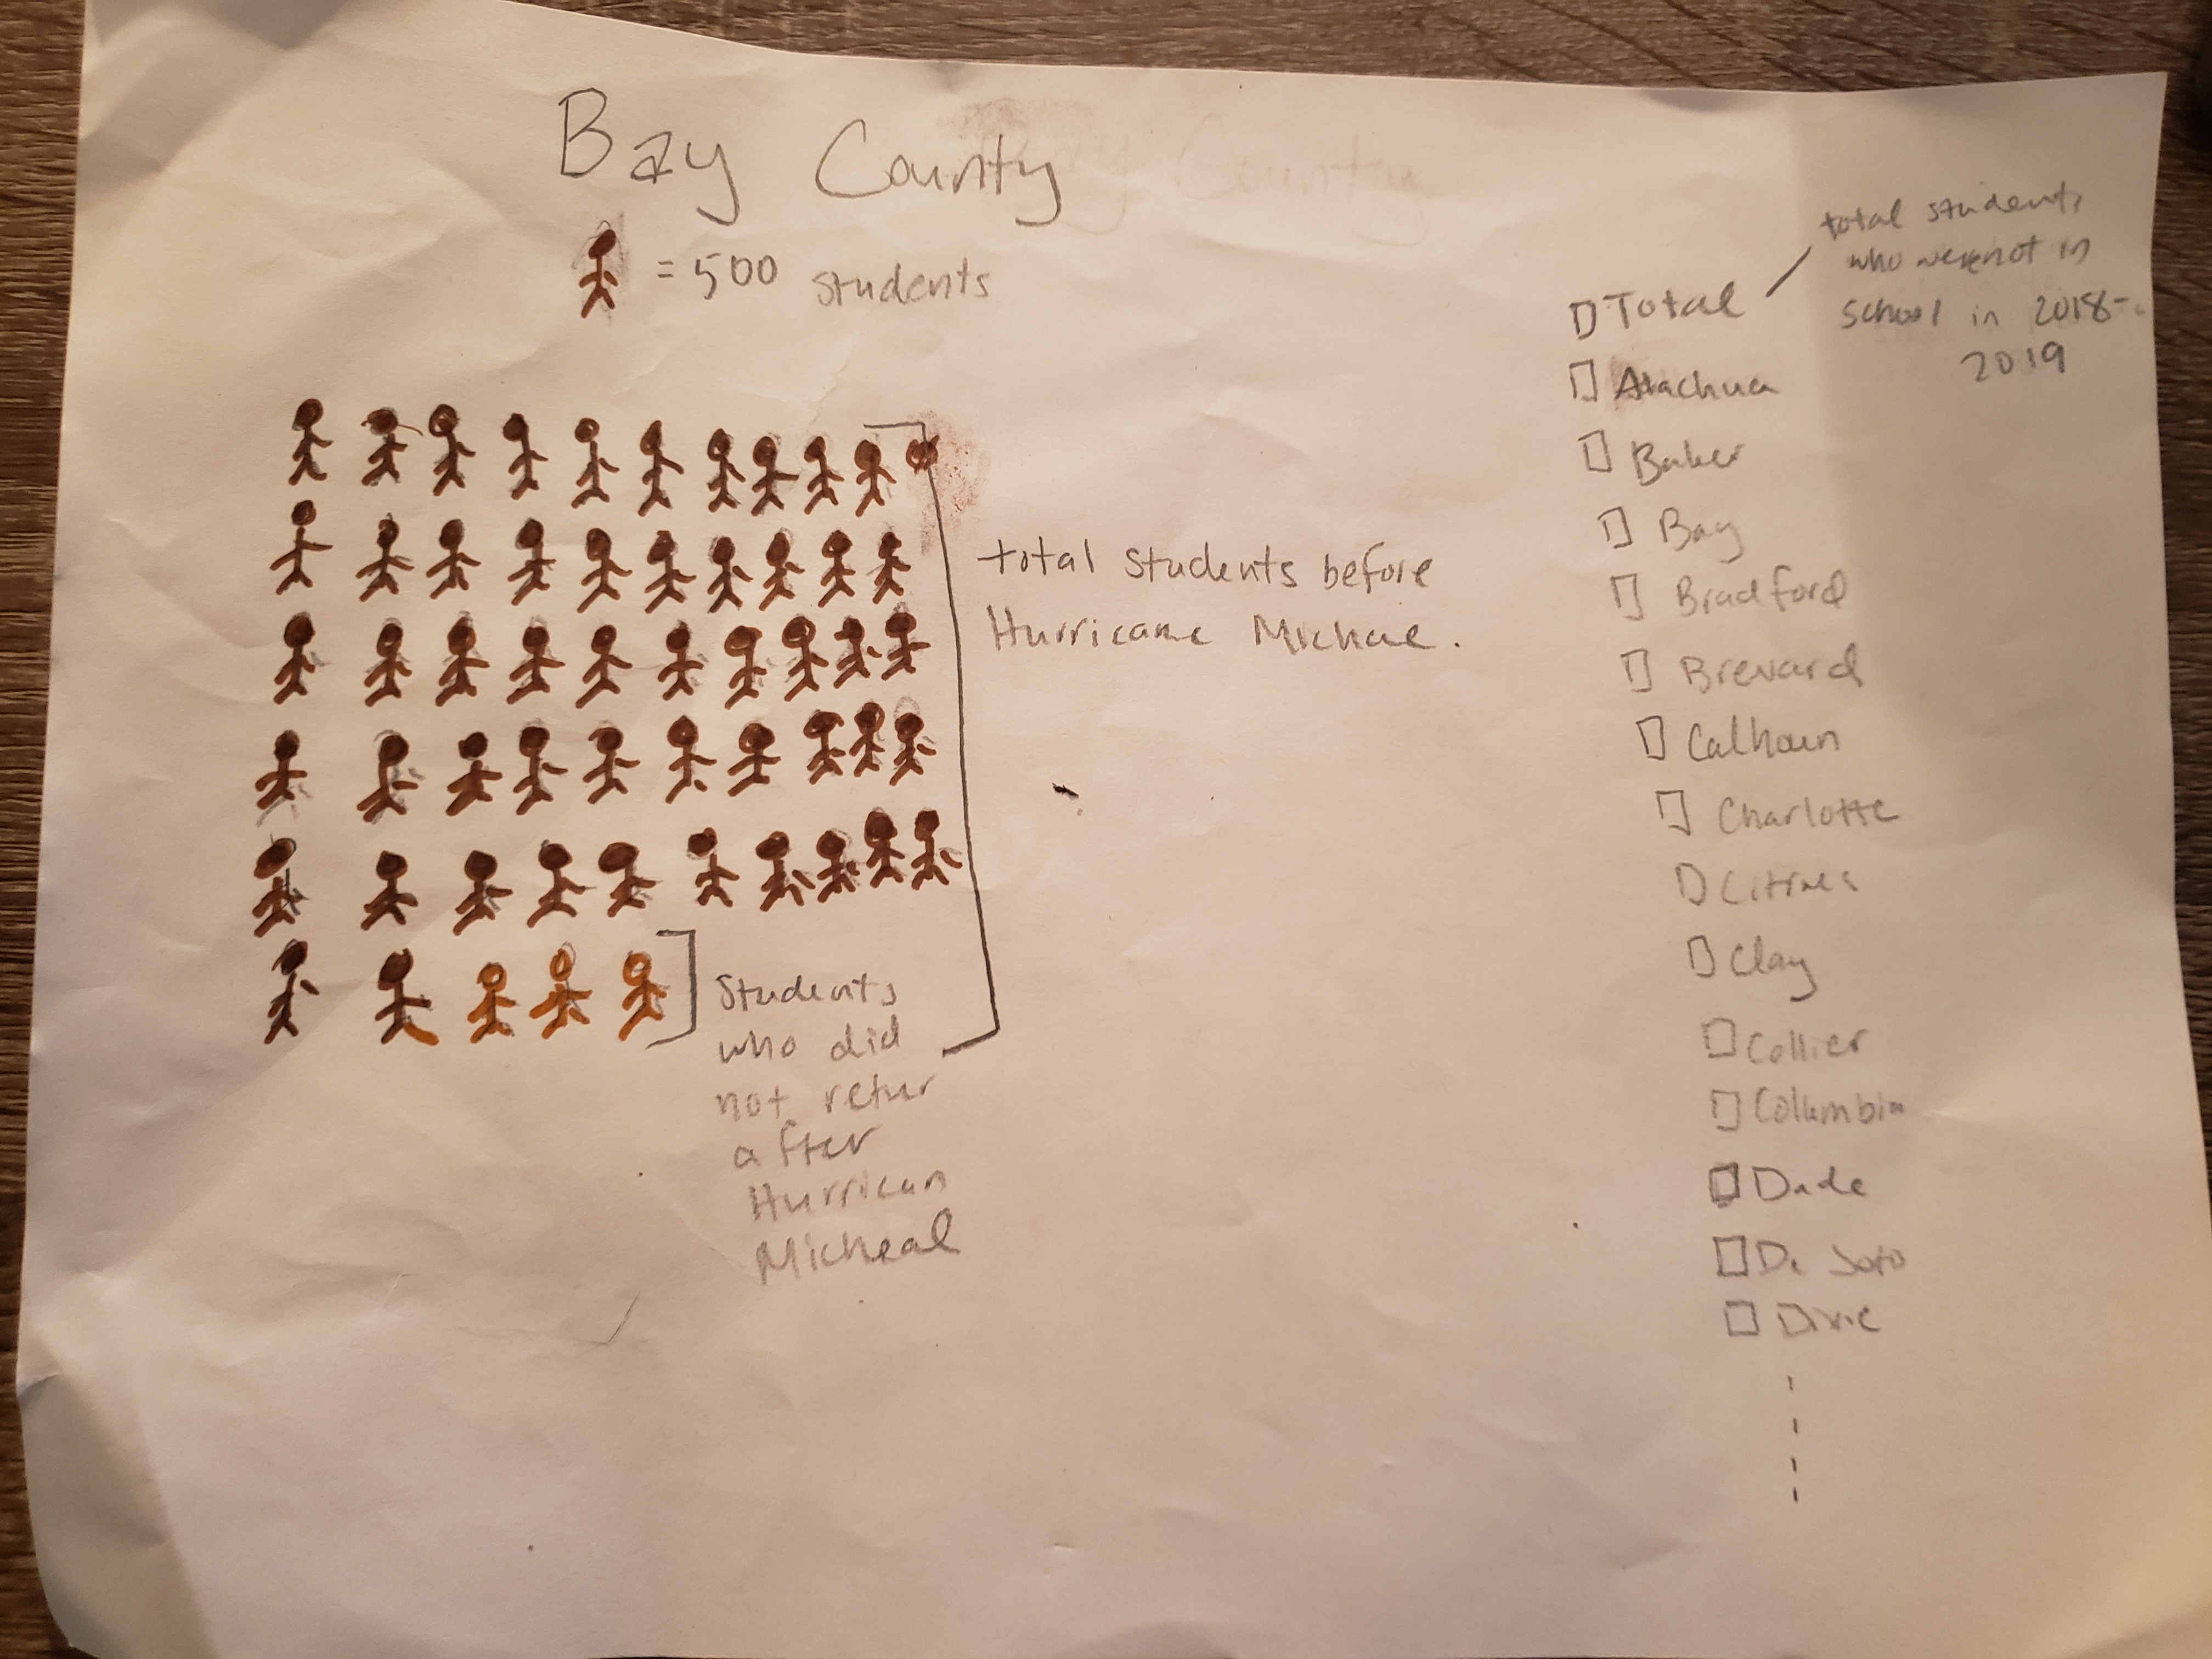 Bay County
= 500 students
total students before
Hurricane Michael.
Students
who did
not retur
after
Hurrican
Micheal
total students
who were not in
school in 2018-
2019
Total
Alachua
Baker
Bay
Bradford
Brevard
Calhoun
Charlotte
Citrus
Clay
Collier
Columbia
Dade
De Soto
Dixie